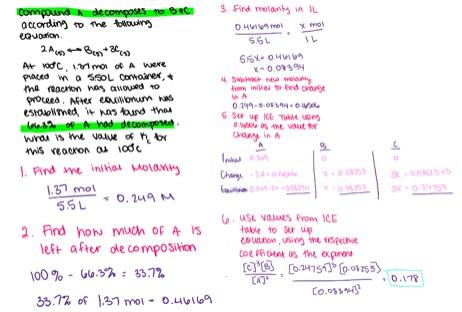 Compound A decomposes to B+C
according to the following
equation.
2A(g) ⟷ B(g) + 3C(g)
At 100°C, 1.37 mol of A were
placed in a 5.50L container, &
the reaction was allowed to
proceed. After equilibrium was
established, it was found that
66.3% of A had decomposed.
What is the value of Kc for
this reaction at 100°C
1. Find the initial Molarity
1.37 mol
5.5L
= 0.249 M
2. Find how much of A is
left after decomposition
100% - 66.3% = 33.7%
33.7% of 1.37 mol = 0.46169
3. Find molarity in 1L
0.46169 mol = x mol
5.5L 1L
5.5x = 0.46169
x = 0.08394
4. Subtract new molarity
from initial to find change
in A
0.249 - 0.08394 = 0.16506
5. Set up ICE Table using
0.16506 as the value for
Change in A
A B C
Initial 0.249 0 0
Change -2x = x = 0.08253 3x =
Equilibrium = 0.08394 x = 0.08253 3x = 0.24759
6. Use values from ICE
table to set up
equation, using the respective
coefficient as the exponent
[C]³[B] = [0.24759]³[0.08253] = 0.178
[A]² [0.08394]²